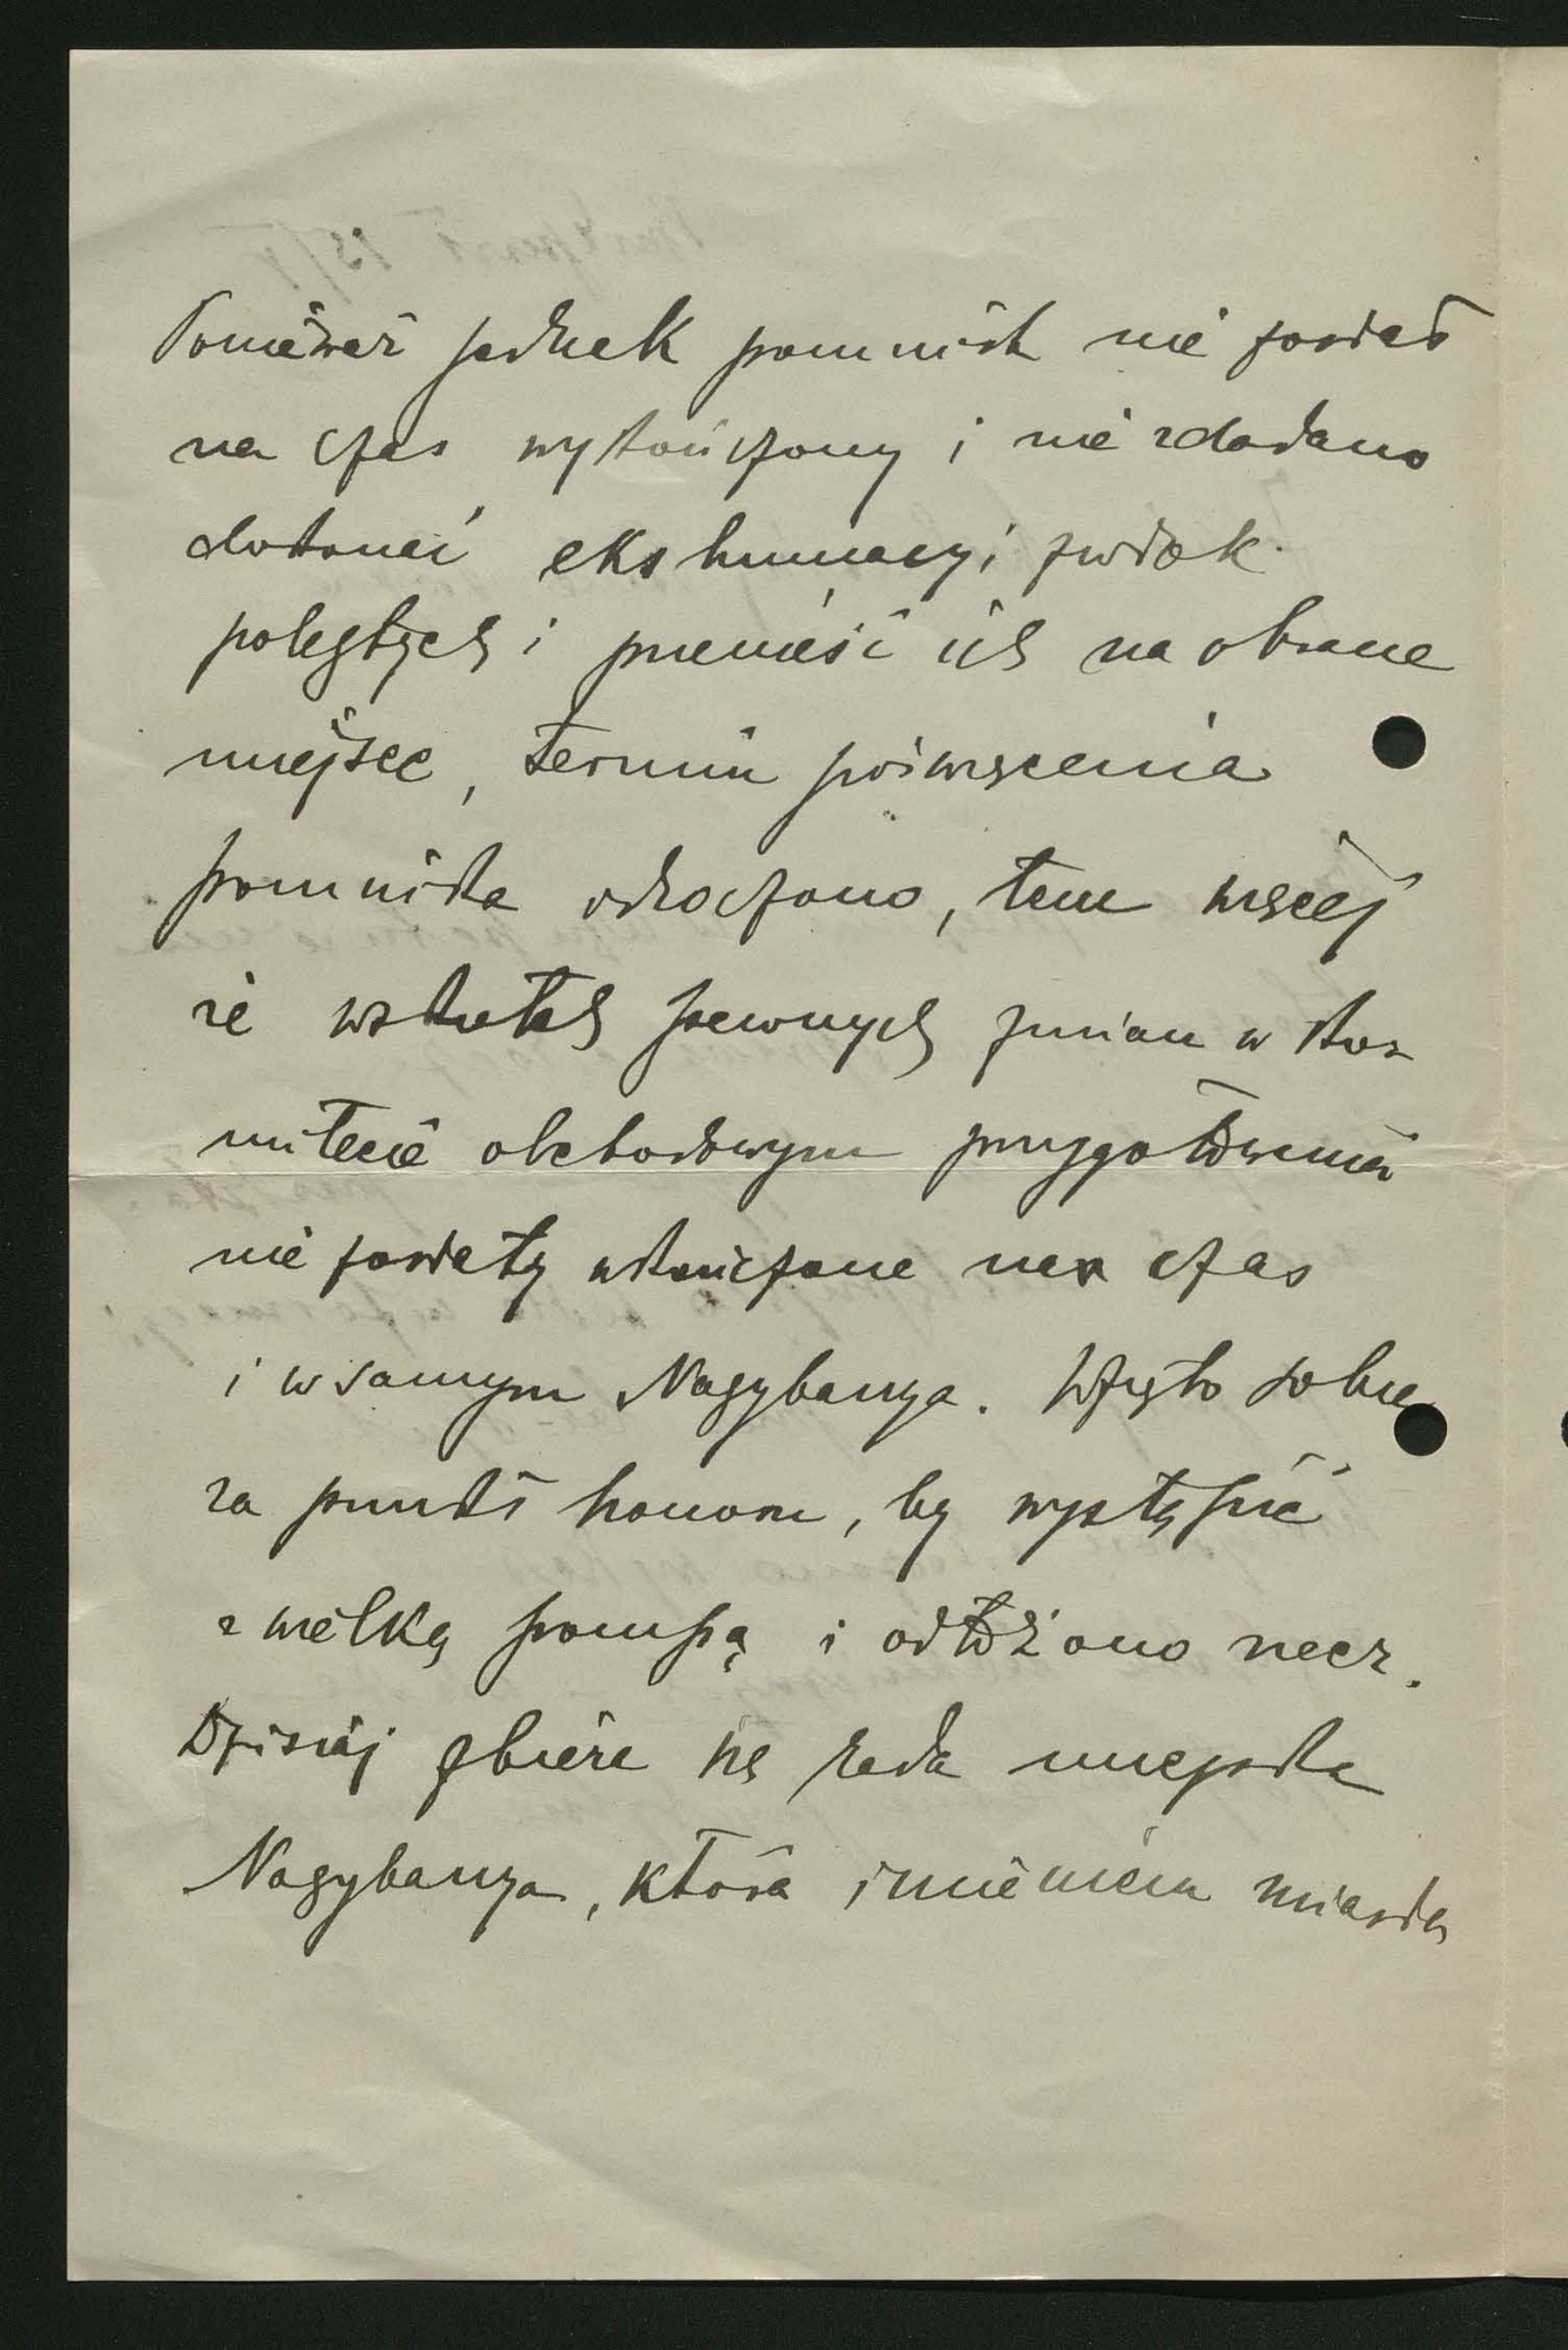 Ponieważ jednak pomnik nie został
na czas wykończony i nie zdołano
dokonać ekshumacyi zwłok
poległych i przenieść ich na obrane
miejsce, termin poświęcenia
pomnika odroczono, tem więcej
że wskutek pewnych zmian w ko-
mitecie obchodowym przygotowania
nie zostały ukończone na czas
i w samym Nagybanya. Wzięto sobie
za punkt honoru, by wystąpić
z wielką pompą i odłożono rzecz.
Dzisiaj zbiera się rada miejska
Nagybanya, która imieniem miasta